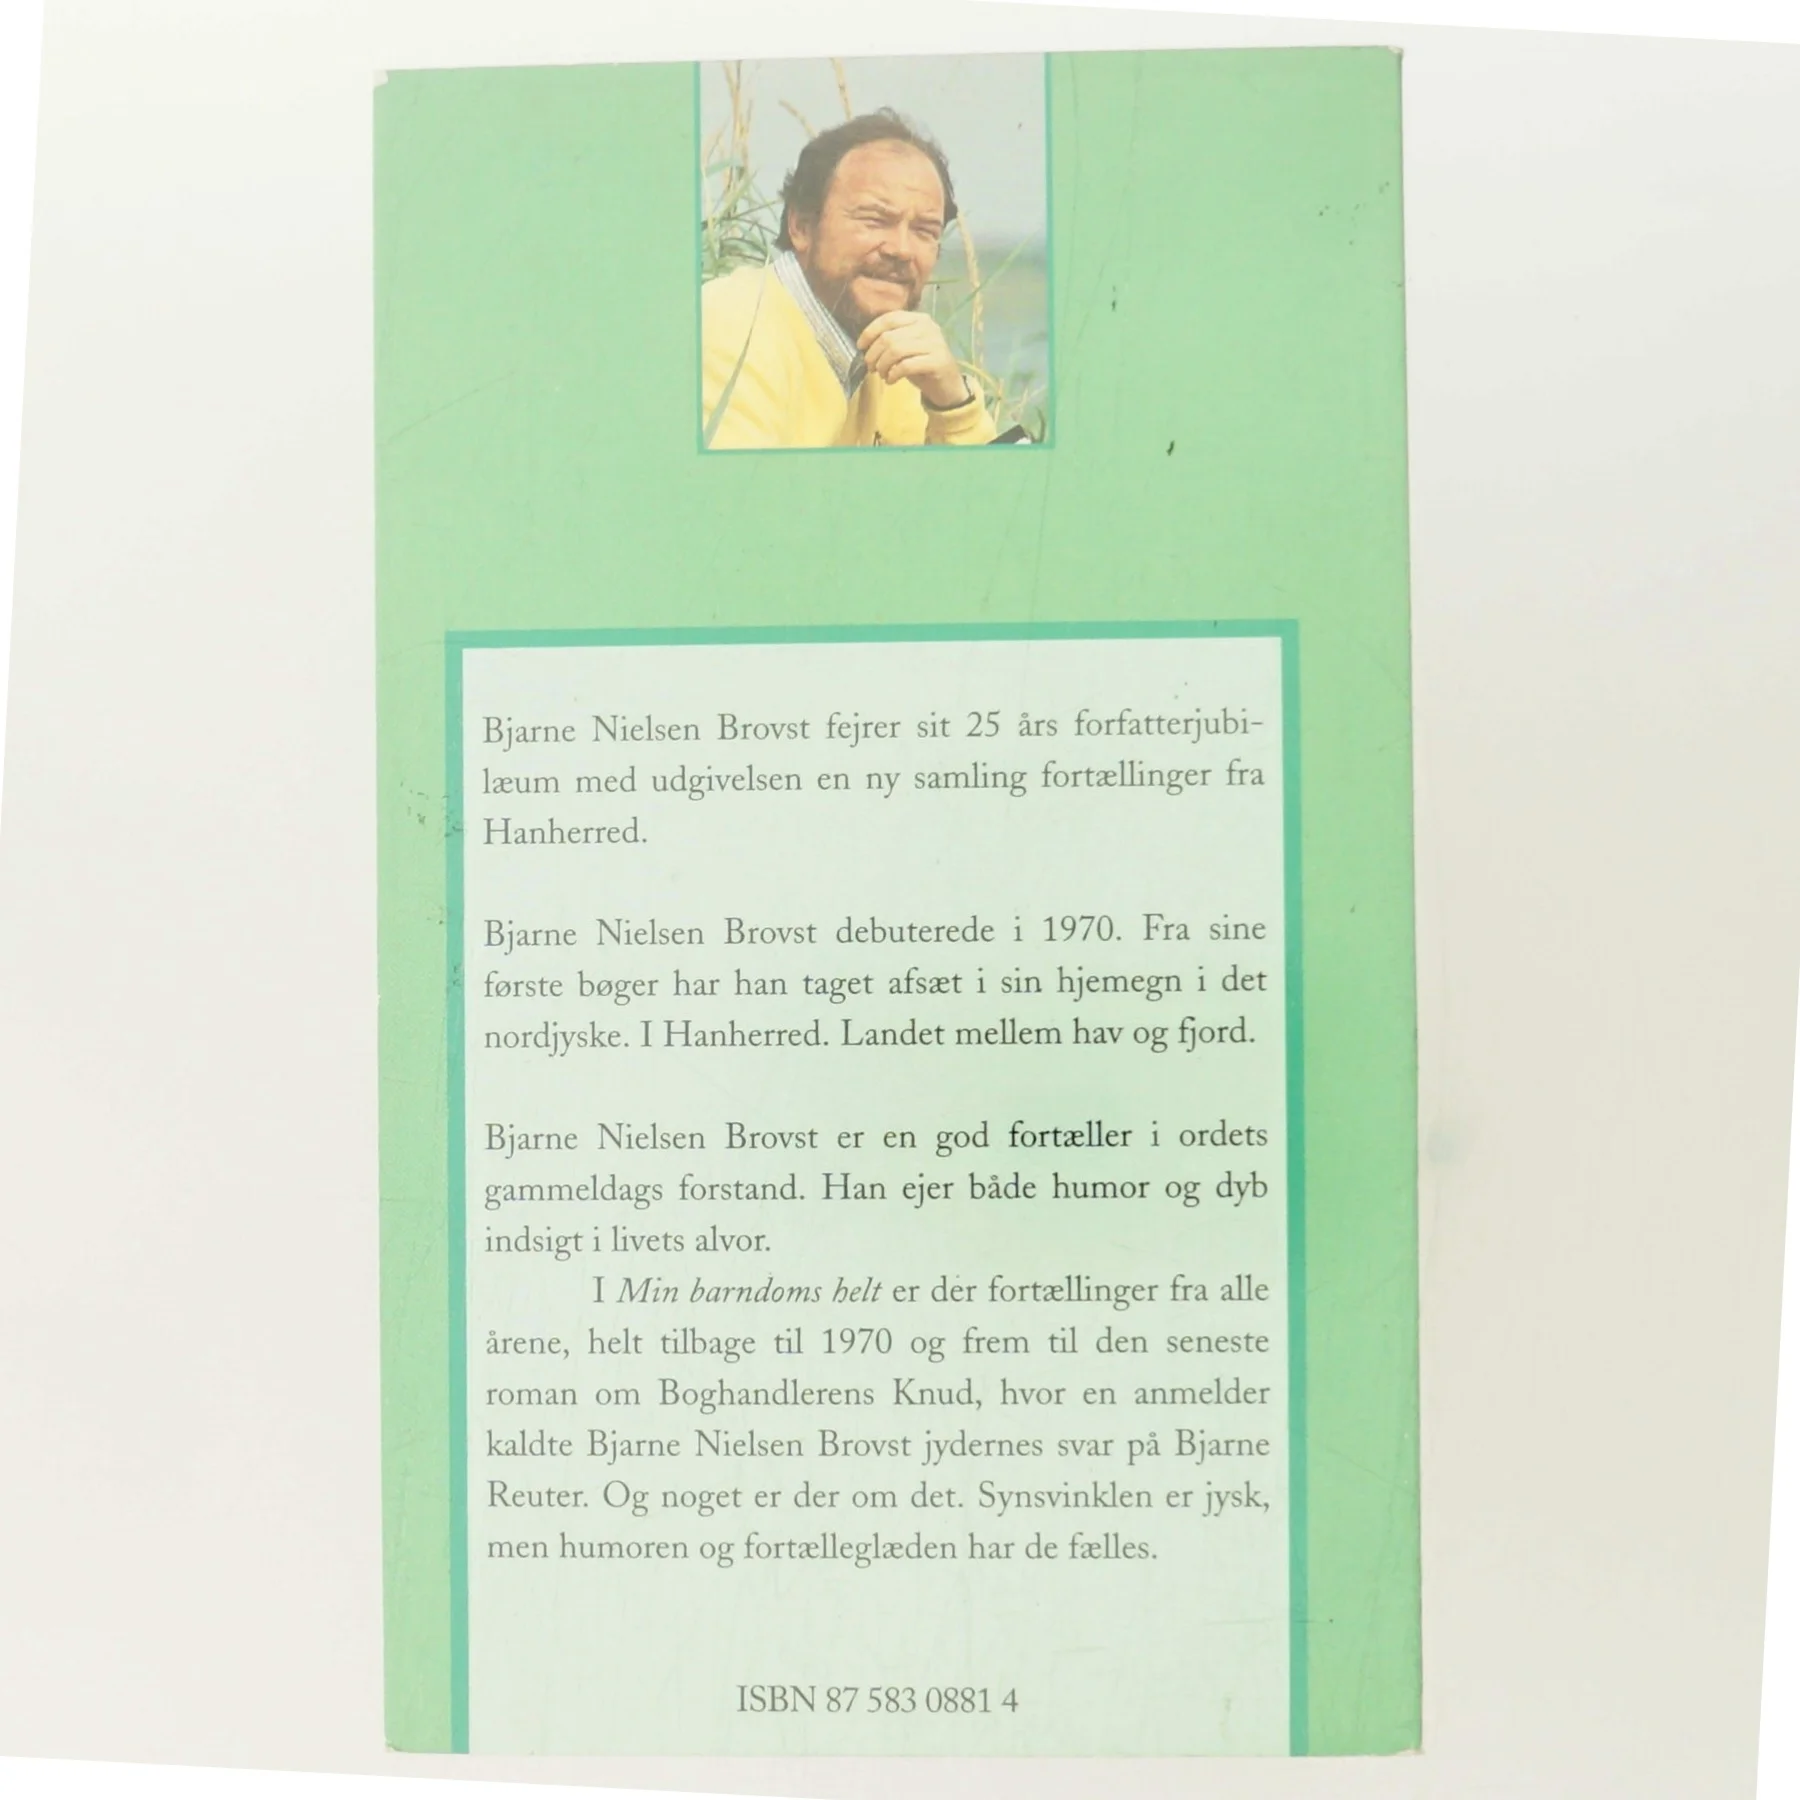 Bjarne Nielsen Brovst fejrer sit 25 års forfatterjubi-
læum med udgivelsen en ny samling fortællinger fra
Hanherred.
Bjarne Nielsen Brovst debuterede i 1970. Fra sine
første bøger har han taget afsæt i sin hjemegn i det
nordjyske. I Hanherred. Landet mellem hav og fjord.
Bjarne Nielsen Brovst er en god fortæller i ordets
gammeldags forstand. Han ejer både humor og dyb
indsigt i livets alvor.
I Min barndoms helt er der fortællinger fra alle
årene, helt tilbage til 1970 og frem til den seneste
roman om Boghandlerens Knud, hvor en anmelder
kaldte Bjarne Nielsen Brovst jydernes svar på Bjarne
Reuter. Og noget er der om det. Synsvinklen er jysk,
men humoren og fortælleglæden har de fælles.
ISBN 87 583 0881 4